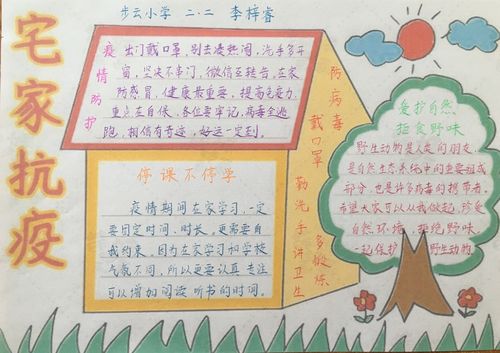 步云小学 二.二 李梓睿
宅家抗疫
疫情防护
出门戴口罩,别去凑热闹,洗手多开
窗,坚决不串门,微信互转告,在家
防感冒,健康最重要,提高免疫力,
重点在自保,各位要牢记,病毒全逃
跑,相信有奇迹,好运一定到.
停课不停学
疫情期间在家学习,一定
要固定时间、时长,更需要自
我约束。因为在家学习和学校
气氛不同,所以更要认真专注
可以增加阅读 听书的时间。
防病毒
戴口罩
勤洗手
讲卫生
多锻炼
爱护自然
拒食野味
野生动物是人类的朋友,
是自然生态系统中的重要组成
部分,也是许多病毒的携带者。
希望大家可以从我做起,珍爱
自然环境,拒绝野味。
一起保护野生动物